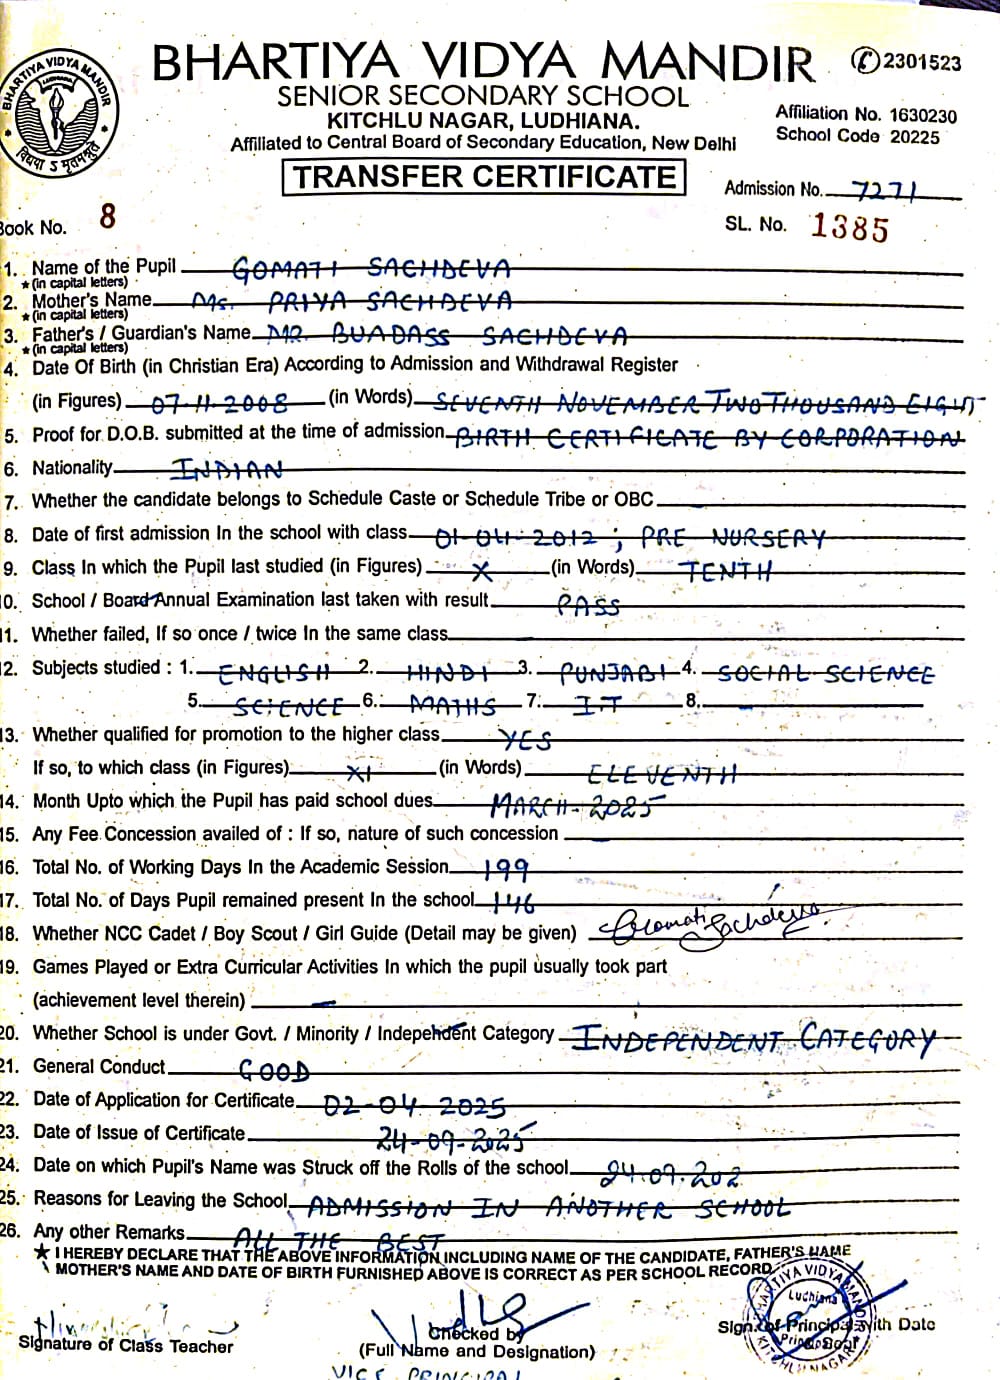 BHARTIYA VIDYA MANDIR
2301523
SENIOR SECONDARY SCHOOL
KITCHLU NAGAR, LUDHIANA.
Affiliated to Central Board of Secondary Education, New Delhi
Affiliation No. 1630230
School Code 20225
BHARTIYA VIDYA MANDIR
LUDHIANA
TRANSFER CERTIFICATE
Admission No. 7271
Book No. 8
SL. No. 1385
1. Name of the Pupil GOMATI SACHDEVA
★(in capital letters)
2. Mother's Name Ms. PRIYA SACHDEVA
★(in capital letters)
3. Father's / Guardian's Name MR. BUADASS SACHDEVA
★(in capital letters)
4. Date Of Birth (in Christian Era) According to Admission and Withdrawal Register
(in Figures) 07-11-2008 (in Words) SEVENTH NOVEMBER TWO THOUSAND EIGHT
5. Proof for D.O.B. submitted at the time of admission BIRTH CERTIFICATE BY CORPORATION
6. Nationality INDIAN
7. Whether the candidate belongs to Schedule Caste or Schedule Tribe or OBC
8. Date of first admission In the school with class 01-04-2012 ; PRE NURSERY
9. Class In which the Pupil last studied (in Figures) X (in Words) TENTH
10. School / Board Annual Examination last taken with result PASS
11. Whether failed, If so once / twice In the same class
12. Subjects studied : 1. ENGLISH 2. HINDI 3. PUNJABI 4. SOCIAL SCIENCE
5. SCIENCE 6. MATHS 7. IT 8. -
13. Whether qualified for promotion to the higher class YES
If so, to which class (in Figures) XI (in Words) ELEVENTH
14. Month Upto which the Pupil has paid school dues MARCH-2025
15. Any Fee Concession availed of : If so, nature of such concession
16. Total No. of Working Days In the Academic Session 199
17. Total No. of Days Pupil remained present In the school 146
18. Whether NCC Cadet / Boy Scout / Girl Guide (Detail may be given) Gomati Sachdeva
19. Games Played or Extra Curricular Activities In which the pupil usually took part
(achievement level therein) -
20. Whether School is under Govt. / Minority / Independent Category INDEPENDENT CATEGORY
21. General Conduct GOOD
22. Date of Application for Certificate 02-04-2025
23. Date of Issue of Certificate 24-09-2025
24. Date on which Pupil's Name was Struck off the Rolls of the school 24.09.202
25. Reasons for Leaving the School ADMISSION IN ANOTHER SCHOOL
26. Any other Remarks ALL THE BEST
★ I HEREBY DECLARE THAT THE ABOVE INFORMATION INCLUDING NAME OF THE CANDIDATE, FATHER'S NAME
MOTHER'S NAME AND DATE OF BIRTH FURNISHED ABOVE IS CORRECT AS PER SCHOOL RECORD
BHARTIYA VIDYA MANDIR
Ludhiana
Principal
KITCHLU NAGAR
Signature of Class Teacher
Checked by
(Full Name and Designation)
Sign. of Principal With Date
VICE PRINCIPAL